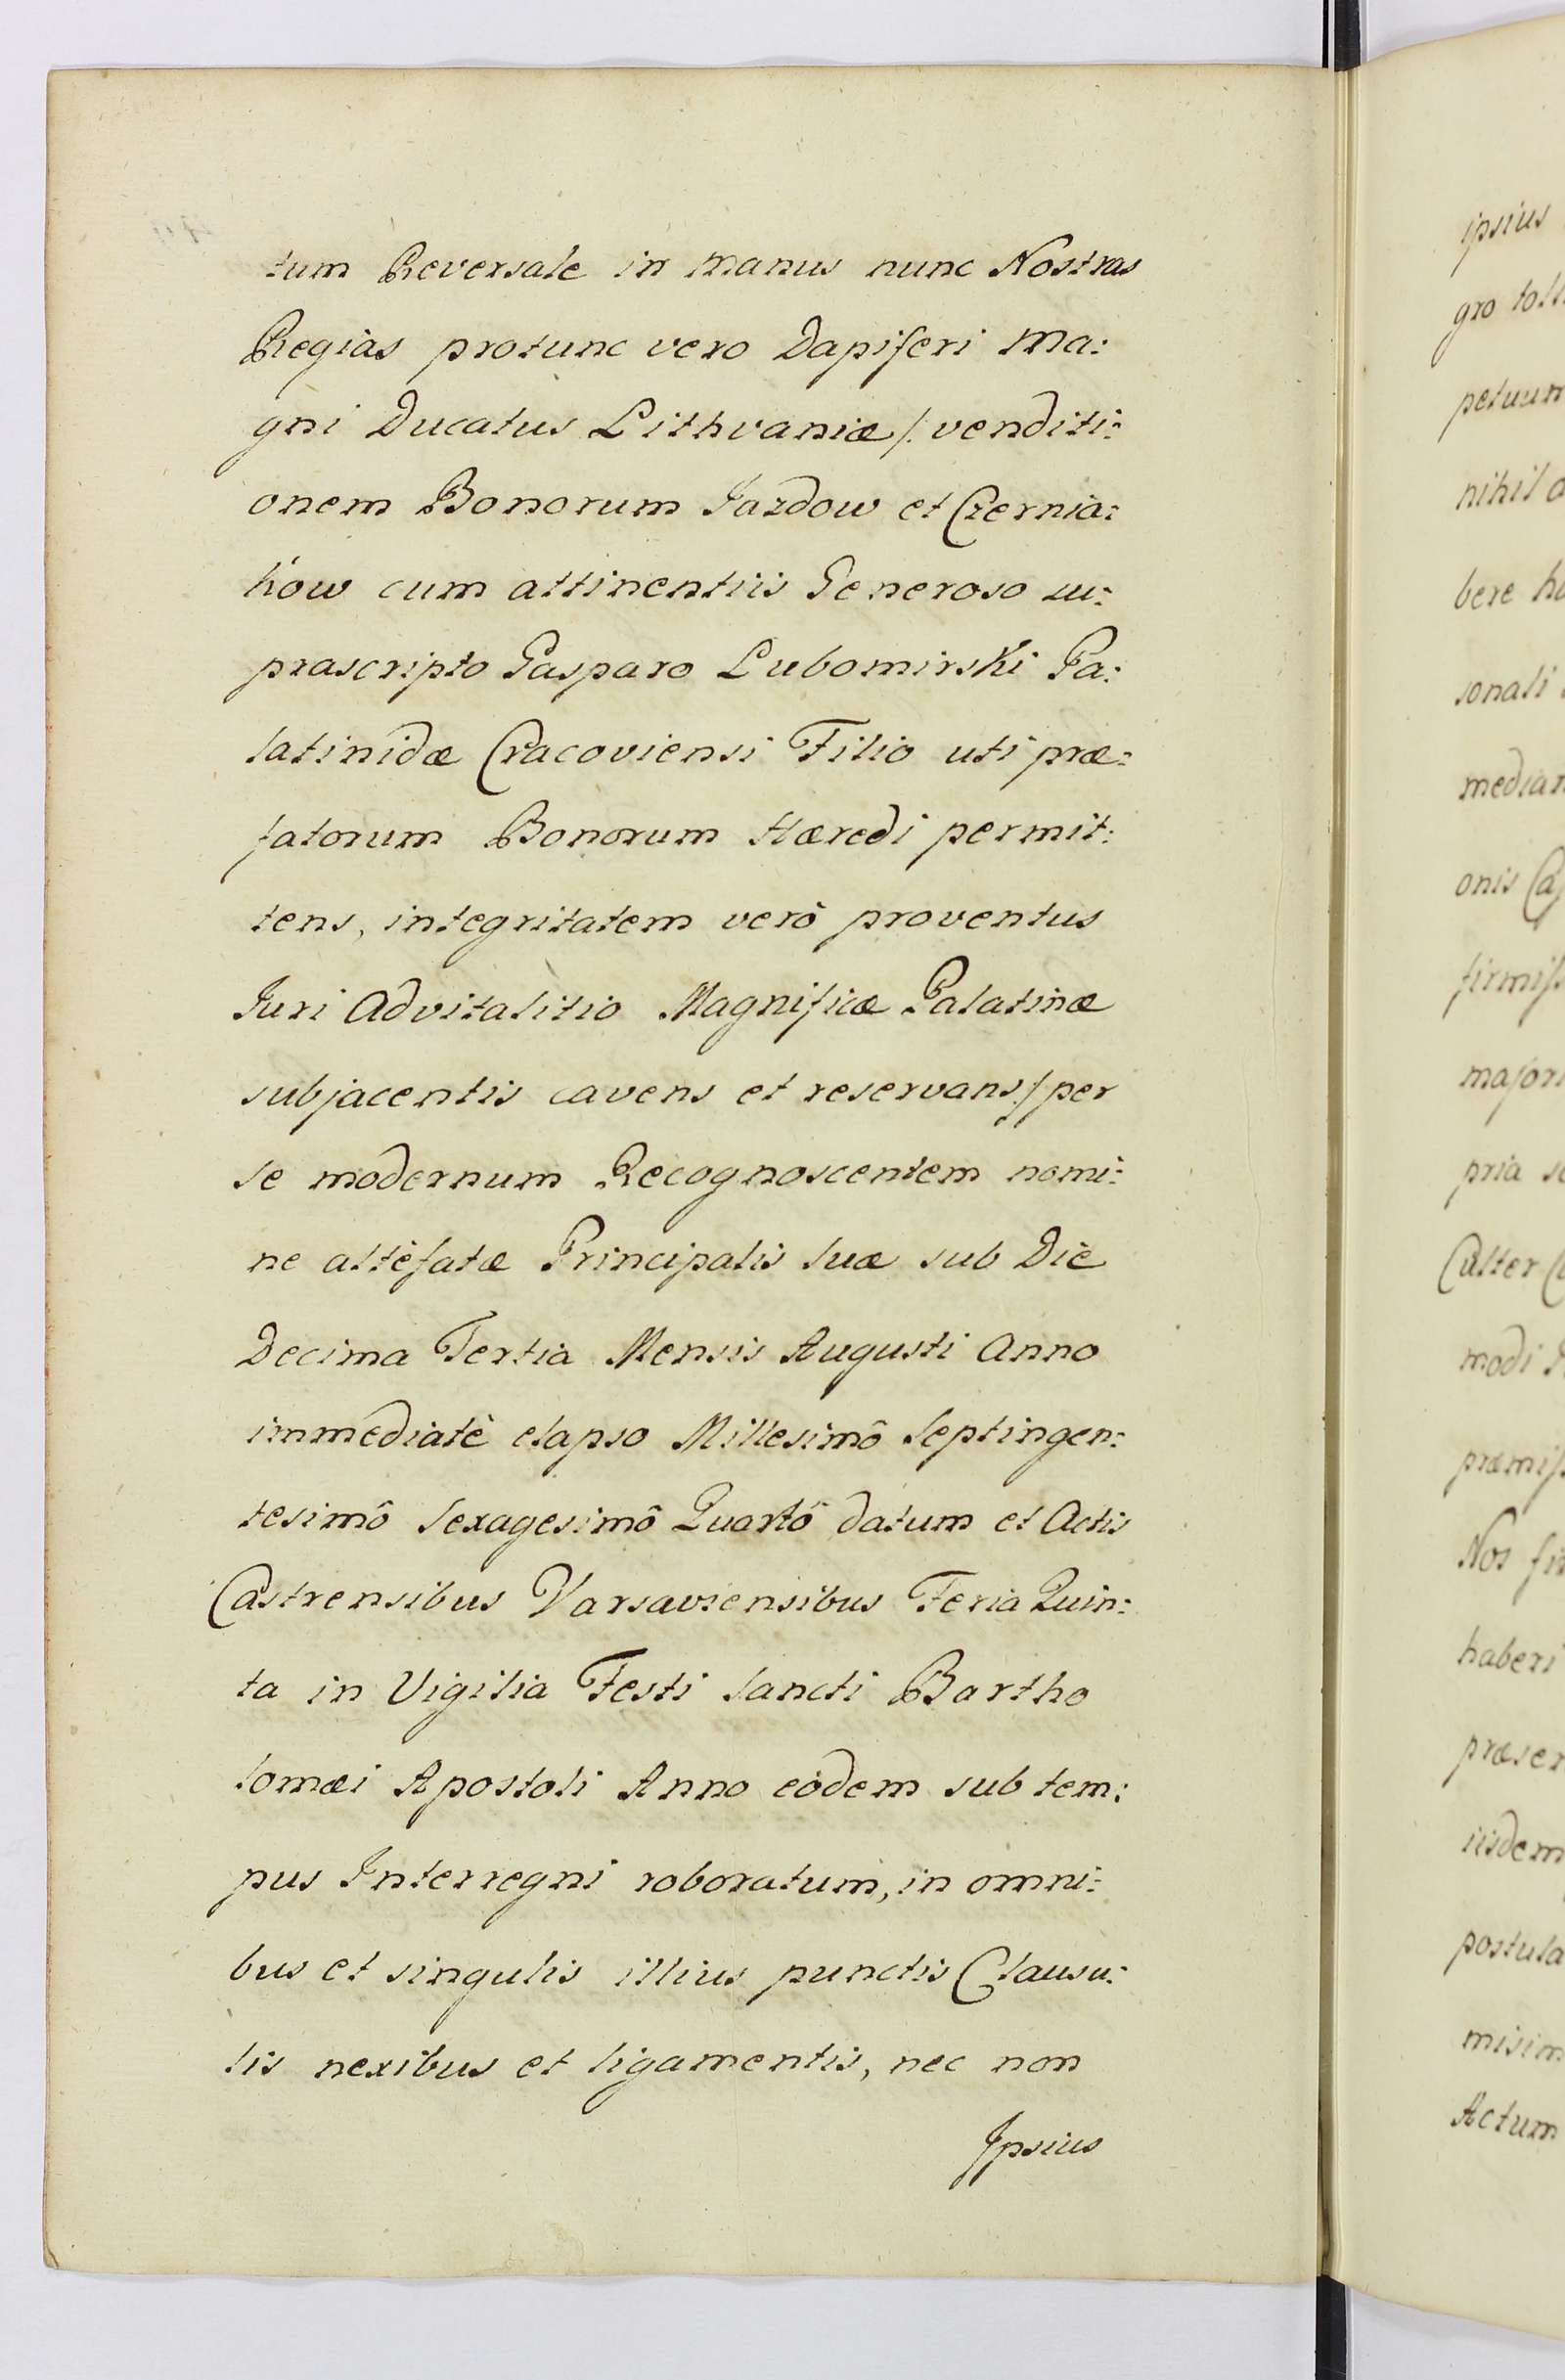 tum Reversale in Manus nunc Nostras
Regias protunc vero Dapiferi Ma:
gni Ducatus Lithvaniæ /: venditi:
onem Bonorum Jazdow et Czernia:
kow cum attinentiis Generoso su:
prascripto Gasparo Lubomirski Pa:
latinidæ Cracoviensi Filio uti præ:
fatorum Bonorum Hæredi permit:
tens, integritatem verò proventus
Juri Advitalitio Magnificæ Palatinæ
subjacentis cavens et reservans :/ per
se modernum Recognoscentem nomi:
ne altèfatæ Principalis suæ sub Die
Decima Tertia Mensis Augusti Anno
immediatè elapso Millesimô Septingen:
tesimô Sexagesimô Quartô datum et Actis
Castrensibus Varsaviensibus Feria Quin:
ta in Vigilia Festi Sancti Bartho
lomæi Apostoli Anno eòdem sub tem:
pus Interregni roboratum, in omni:
bus et singulis illius punctis Clausu:
lis nexibus et ligamentis, nec non
Ipsius
ipsius
gro
petuum
nihil
bere
sonali
median
onis
firmiss
majori
pria
Culter
modi
præmiss
Nos
haberi
præser
iisdem
postula
misim
Actum